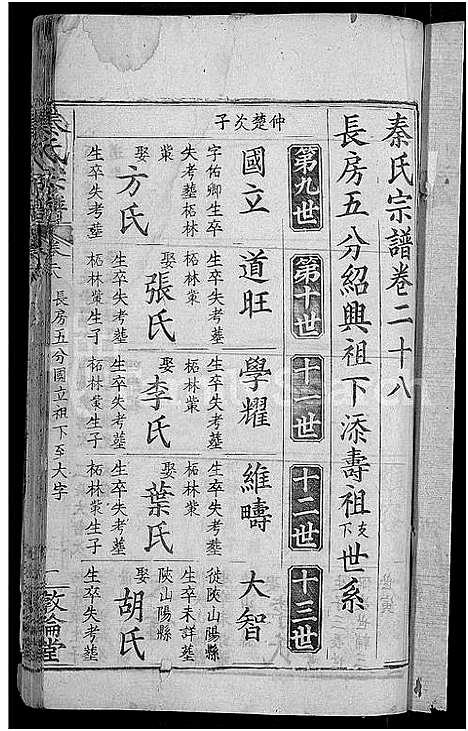 秦氏宗譜卷二十八
長房五分紹興祖下添壽祖支下世系
第九世
第十世
十一世
十二世
十三世
仲楚次子
國立
字佑卿生卒
失考塟柘林
棠
娶
方氏
生卒失考塟
道旺
生卒失考塟
柘林棠
娶
張氏
生卒失考塟
柘林棠生子
學耀
生卒失考塟
柘林棠
娶
李氏
生卒失考塟
柘林棠生子
維疇
生卒失考塟
柘林棠
娶
葉氏
生卒失考塟
柘林棠生子
大智
從陝山陽縣
生卒未詳塟
陝山陽縣
娶
胡氏
生卒失考塟
秦氏宗譜
長房五分國立祖下至大字
一
敦倫堂